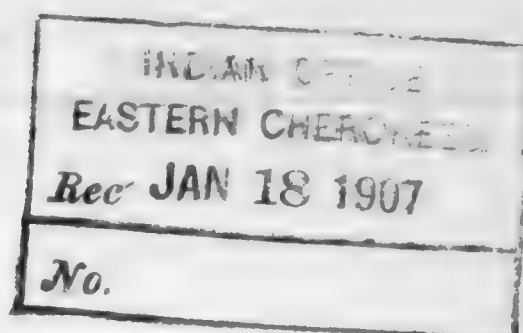 INDIAN OFFICE
EASTERN CHEROKEES
Rec JAN 18 1907
No.